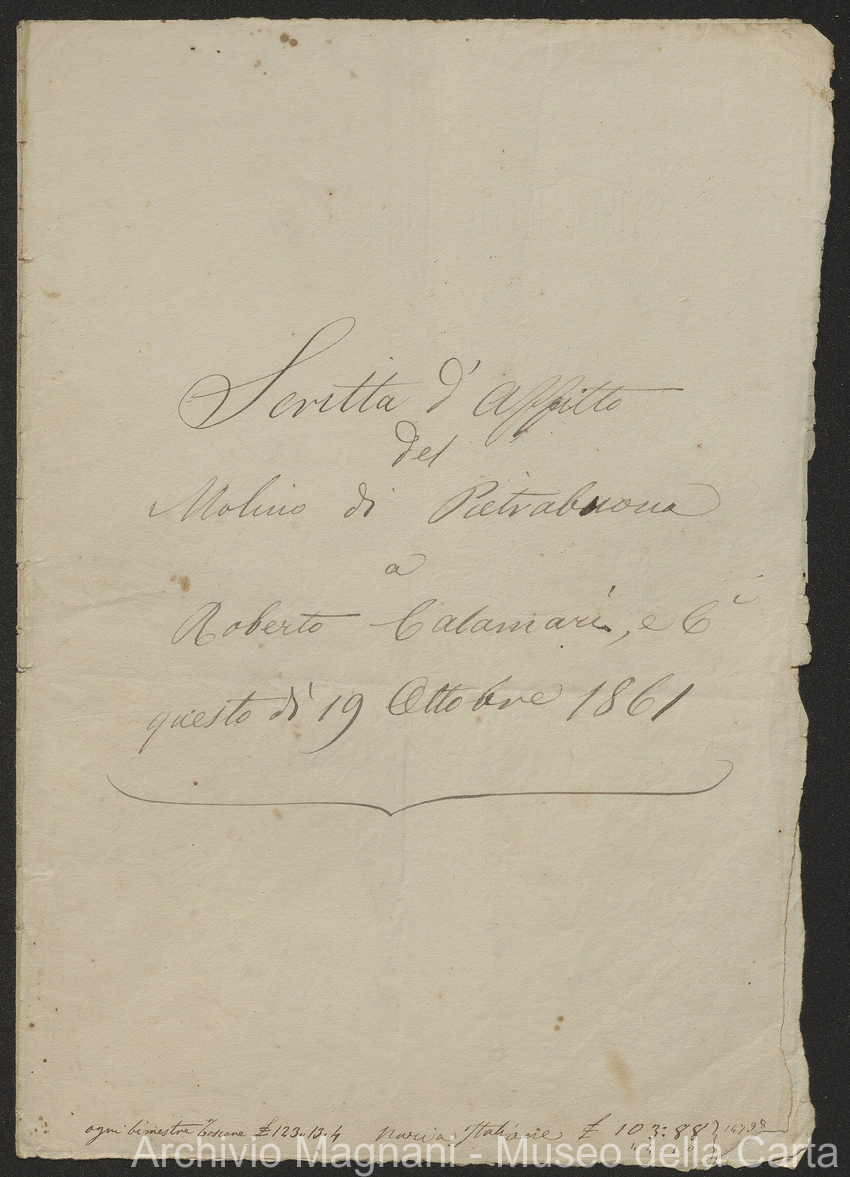 Scritta d'Affitto
del
Molino di Pietrabuona
a
Roberto Calamari, e C.
questo dì 19 Ottobre 1861
ogni bimestre Toscane £ 123..13.4 Italiane £ 103:88
Archivio Magnani - Museo della Carta